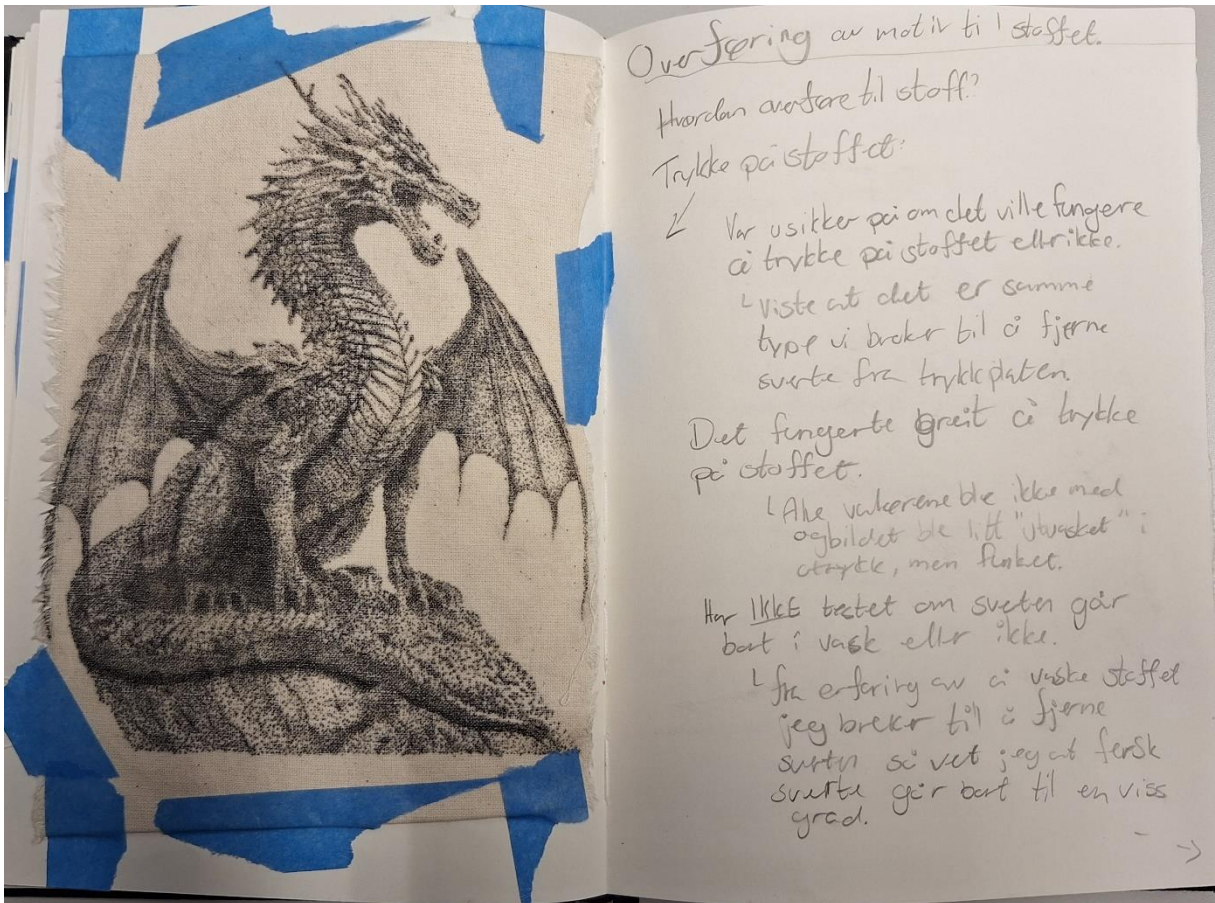 Overføring av motiv til stoffet.
Hvordan overføre til stoff?
Trykke på stoffet:
Var usikker på om det ville fungere
å trykke på stoffet ellr ikke.
viste at det er samme
type vi broker til å fjerne
sverte fra trykkplaten.
Det fungerte greit å trykke
på stoffet.
Alle valørene ble ikke med
og bildet ble litt "utvasket" i
men funket.
Har IKKE testet om sverten går
bort i vask ellr ikke.
fra erfaring av å vaske stoffet
jeg breker till å fjerne
sverten så vet jeg at fersk
sverte går bort til en viss
grad.